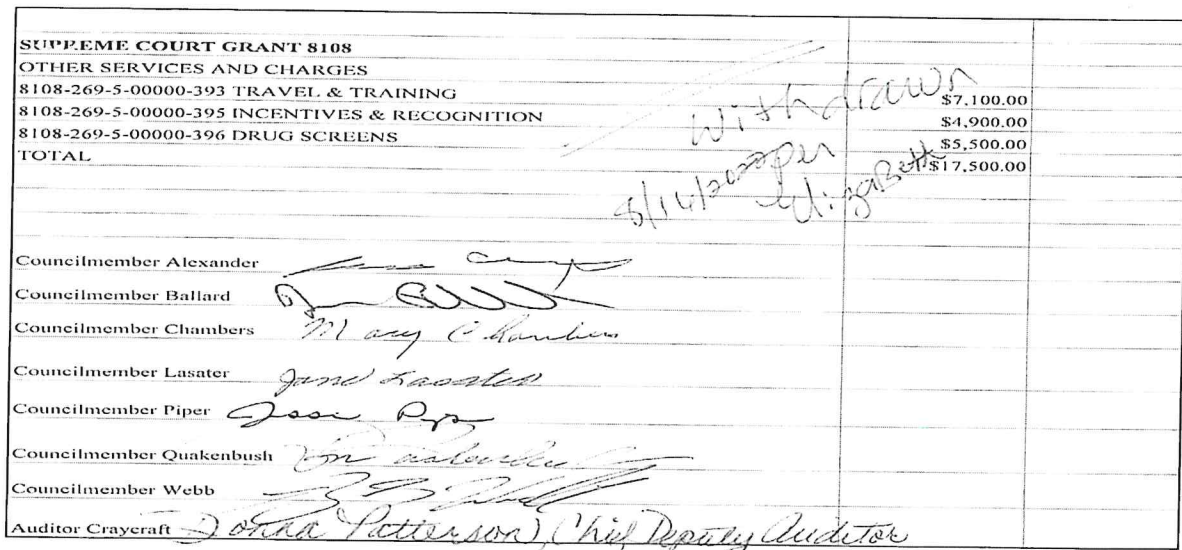 SUPREME COURT GRANT 8108
OTHER SERVICES AND CHARGES
8108-269-5-00000-393 TRAVEL & TRAINING $7,100.00
8108-269-5-00000-395 INCENTIVES & RECOGNITION $4,900.00
8108-269-5-00000-396 DRUG SCREENS $5,500.00
TOTAL $17,500.00
Withdrawn
per
Elizabeth
Councilmember Alexander
Councilmember Ballard
Councilmember Chambers Mary Chambers
Councilmember Lasater Jane Lasater
Councilmember Piper Jesse Piper
Councilmember Quakenbush
Councilmember Webb
Auditor Craycraft Donna Patterson, Chief Deputy Auditor